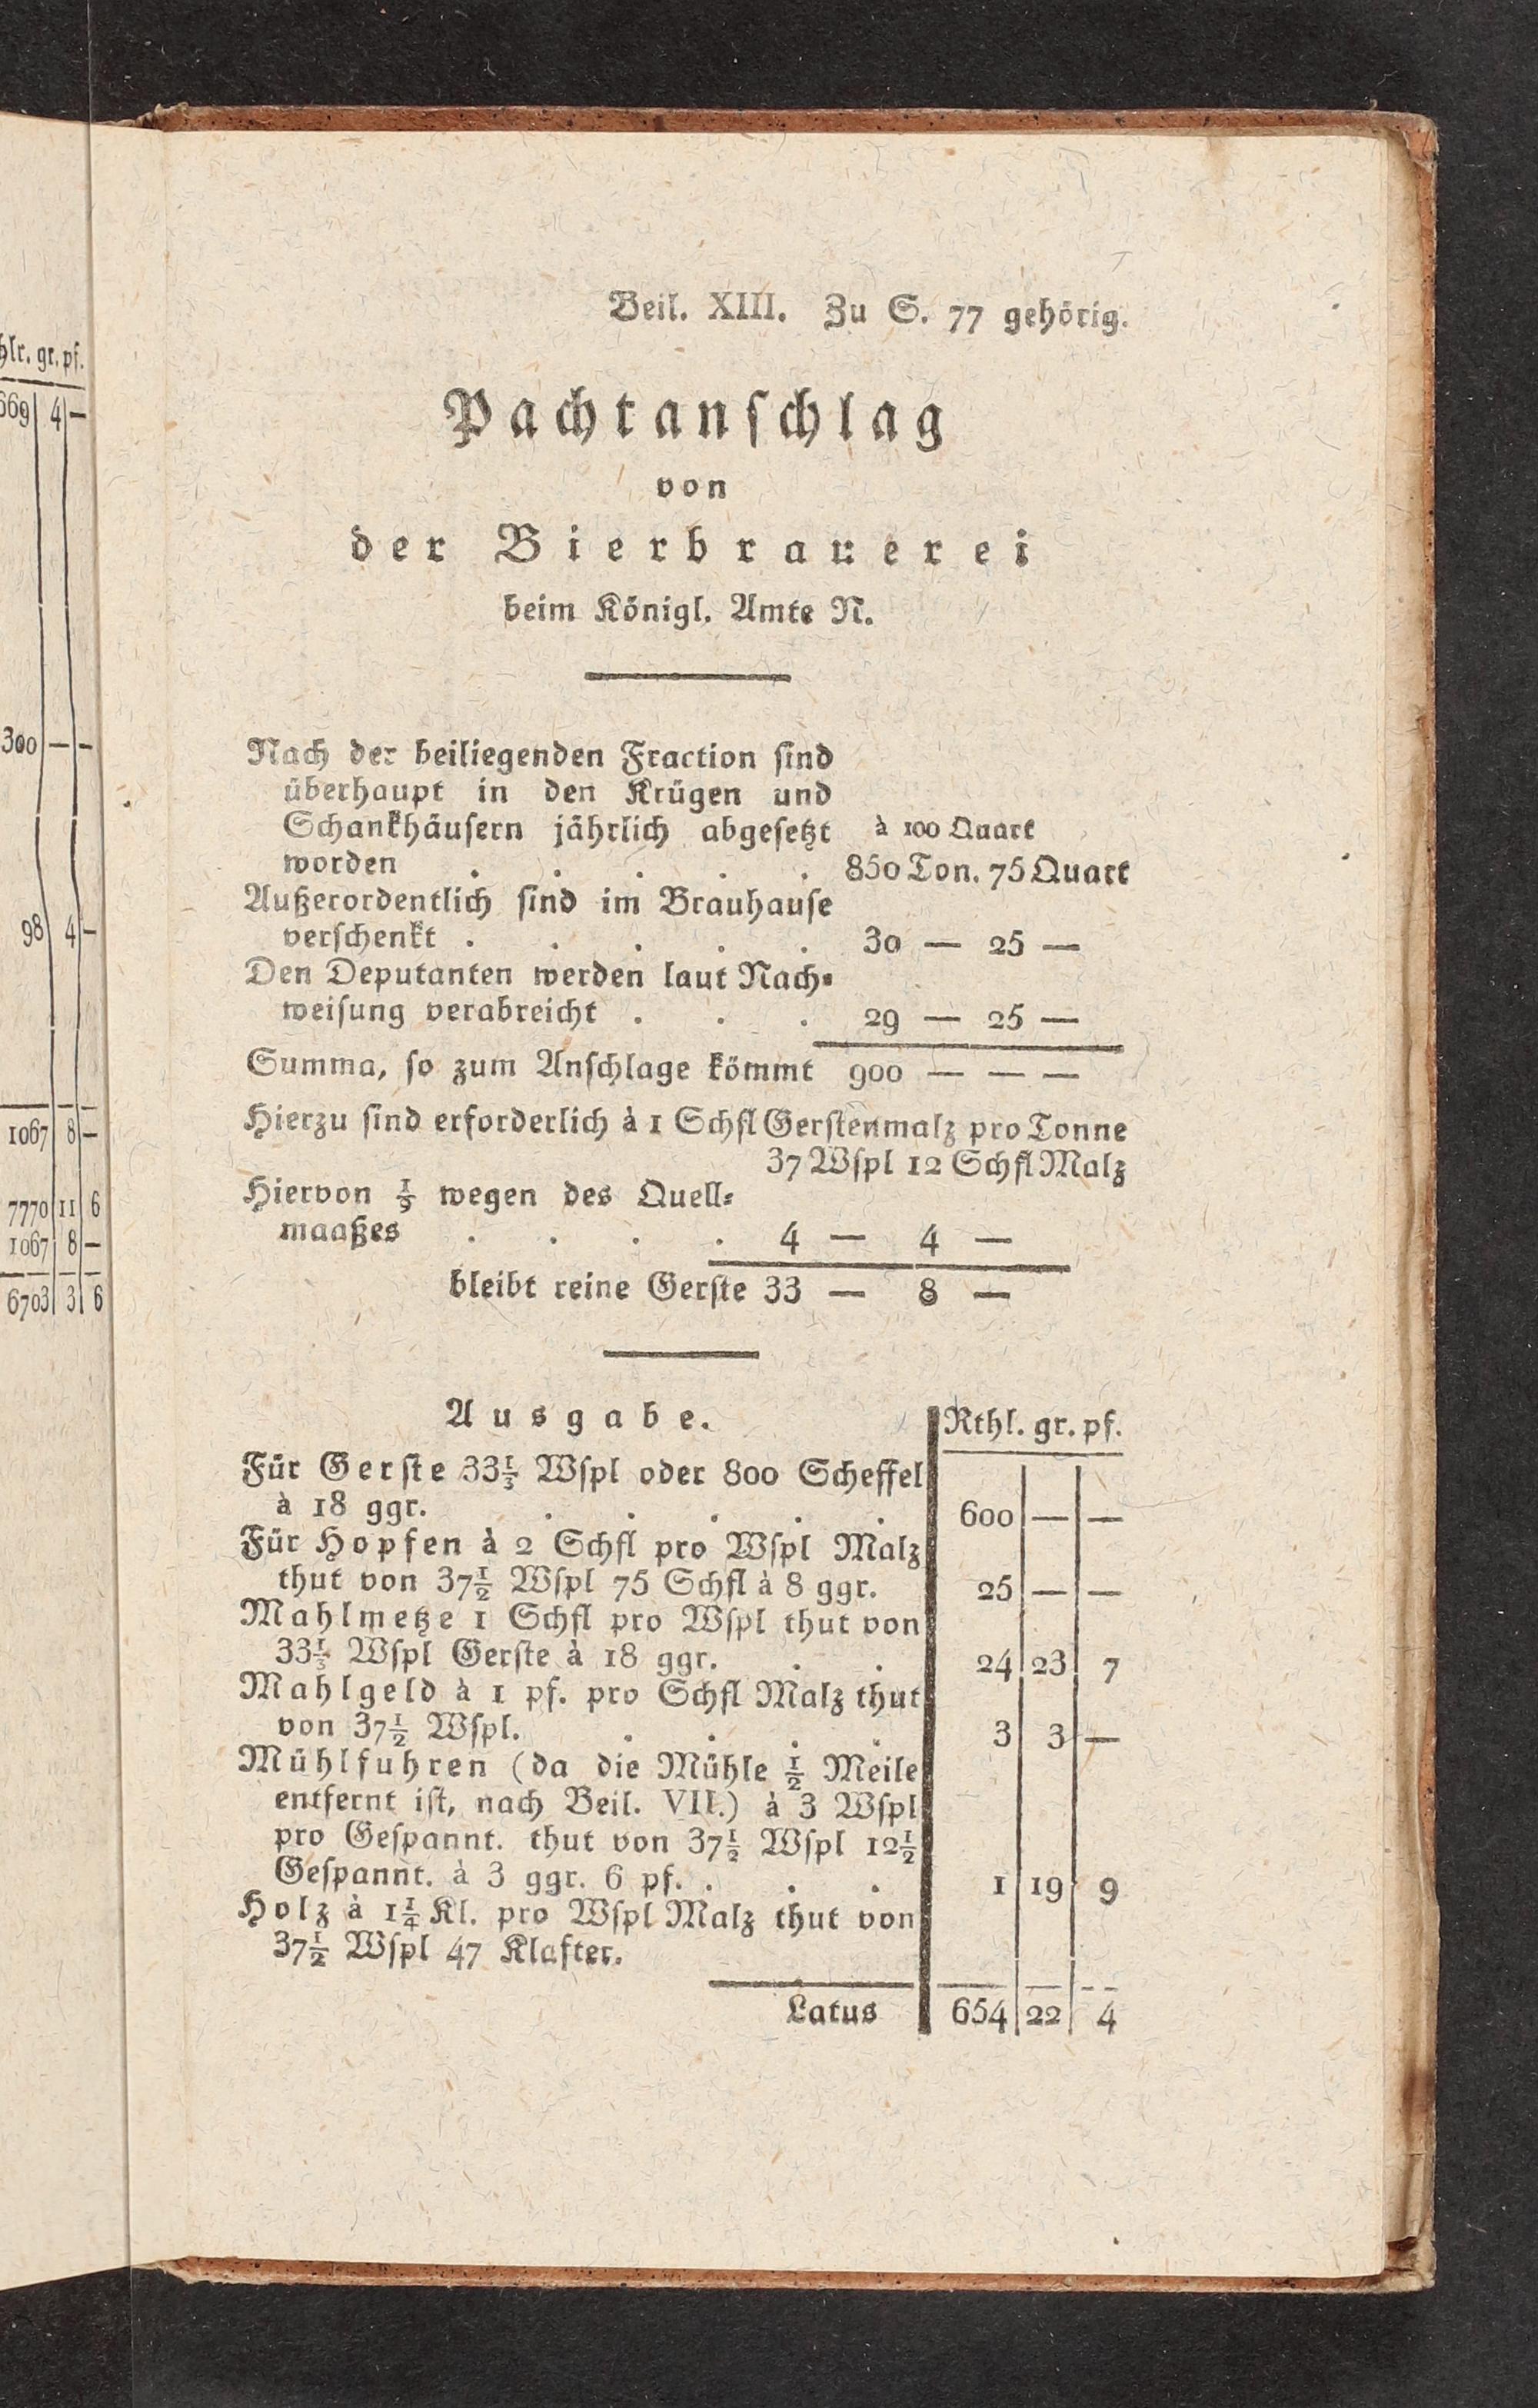 hlr. gr. pf.
669 4 —
300 — —
98 4 —
1067 8 —
7770 11 6
1067 8 —
6703 3 6
Beil. XIII. Zu S. 77 gehörig.
Pachtanschlag
von
der Bierbrauerei
beim Königl. Amte N.
Nach der beiliegenden Fraction sind
überhaupt in den Krügen und
Schankhäusern jährlich abgesetzt à 100 Quart
worden . . . . . 850 Ton. 75 Quart
Außerordentlich sind im Brauhause
verschenkt . . . . . 30 — 25 —
Den Deputanten werden laut Nach=
weisung verabreicht . . . 29 — 25 —
Summa, so zum Anschlage kömmt 900 — — —
Hierzu sind erforderlich à 1 Schfl Gerstenmalz pro Tonne
37 Wspl 12 Schfl Malz
Hiervon 1/9 wegen des Quell=
maaßes . . . . 4 — 4 —
bleibt reine Gerste 33 — 8 —
Ausgabe. Rthl. gr. pf.
Für Gerste 33 1/3 Wspl oder 800 Scheffel
à 18 ggr. . . . . . 600 — —
Für Hopfen à 2 Schfl pro Wspl Malz
thut von 37 1/2 Wspl 75 Schfl à 8 ggr. 25 — —
Mahlmetze 1 Schfl pro Wspl thut von
33 1/3 Wspl Gerste à 18 ggr. . . 24 23 7
Mahlgeld à 1 pf. pro Schfl Malz thut
von 37 1/2 Wspl. . . . . 3 3 —
Mühlfuhren (da die Mühle 1/2 Meile
entfernt ist, nach Beil. VII.) à 3 Wspl
pro Gespannt. thut von 37 1/2 Wspl 12 1/2
Gespannt. à 3 ggr. 6 pf. . . . 1 19 9
Holz à 1 1/4 Kl. pro Wspl Malz thut von
37 1/2 Wspl 47 Klafter.
Latus 654 22 4